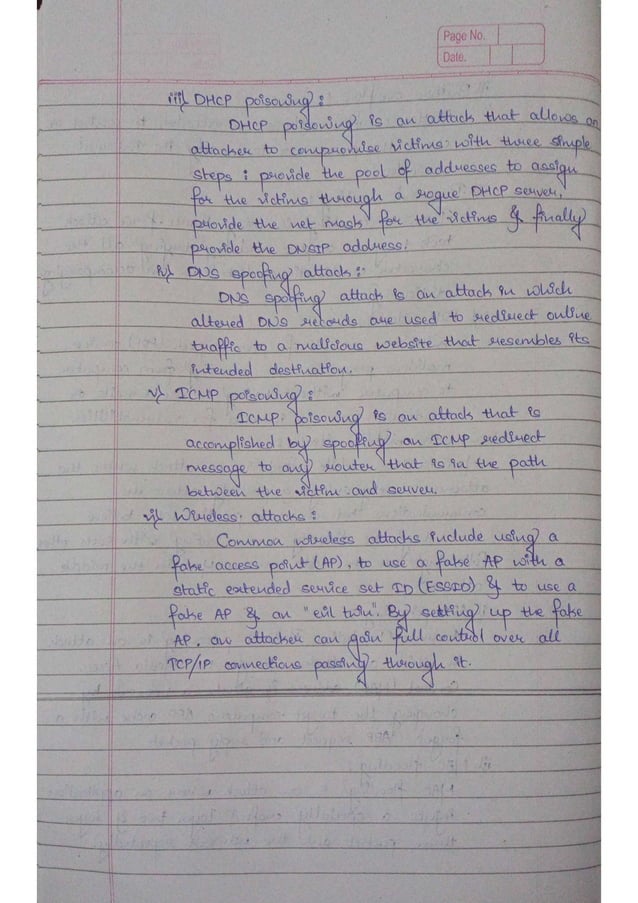 Page No.
Date.
iii) DHCP poisoning :
DHCP poisoning is an attack that allows an
attacker to compromise victims with three simple
steps : provide the pool of addresses to assign
for the victims through a rogue DHCP server,
provide the net mask for the victims & finally
provide the DNSIP address.
iv) DNS spoofing attack :
DNS spoofing attack is an attack in which
altered DNS records are used to redirect online
traffic to a malicious website that resembles its
intended destination.
v) ICMP poisoning :
ICMP poisoning is an attack that is
accomplished by spoofing an ICMP redirect
message to any router that is in the path
between the victim and server.
vi) Wireless attacks :
Common wireless attacks include using a
fake access point (AP), to use a fake AP with a
static extended service set ID (ESSID) & to use a
fake AP & an "evil twin". By setting up the fake
AP, an attacker can gain full control over all
TCP/IP connections passing through it.